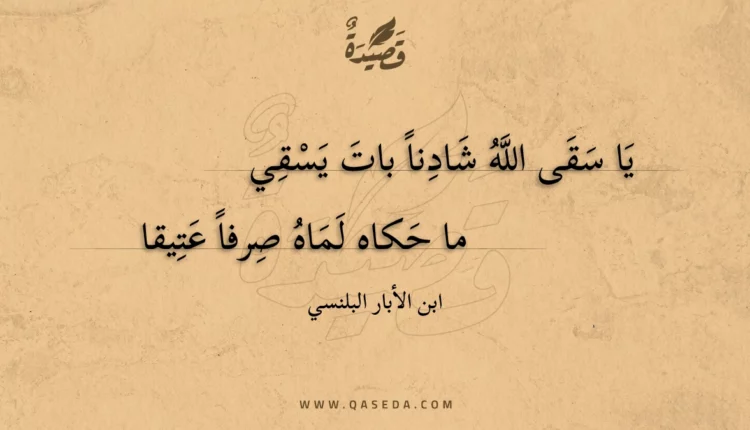 قَصِيدَةٌ
يَا سَقَى اللَّهُ شَادِناً باتَ يَسْقِي
ما حَكاه لَمَاهُ صِرفاً عَتِيقا
ابن الأبار البلنسي
WWW.QASEDA.COM